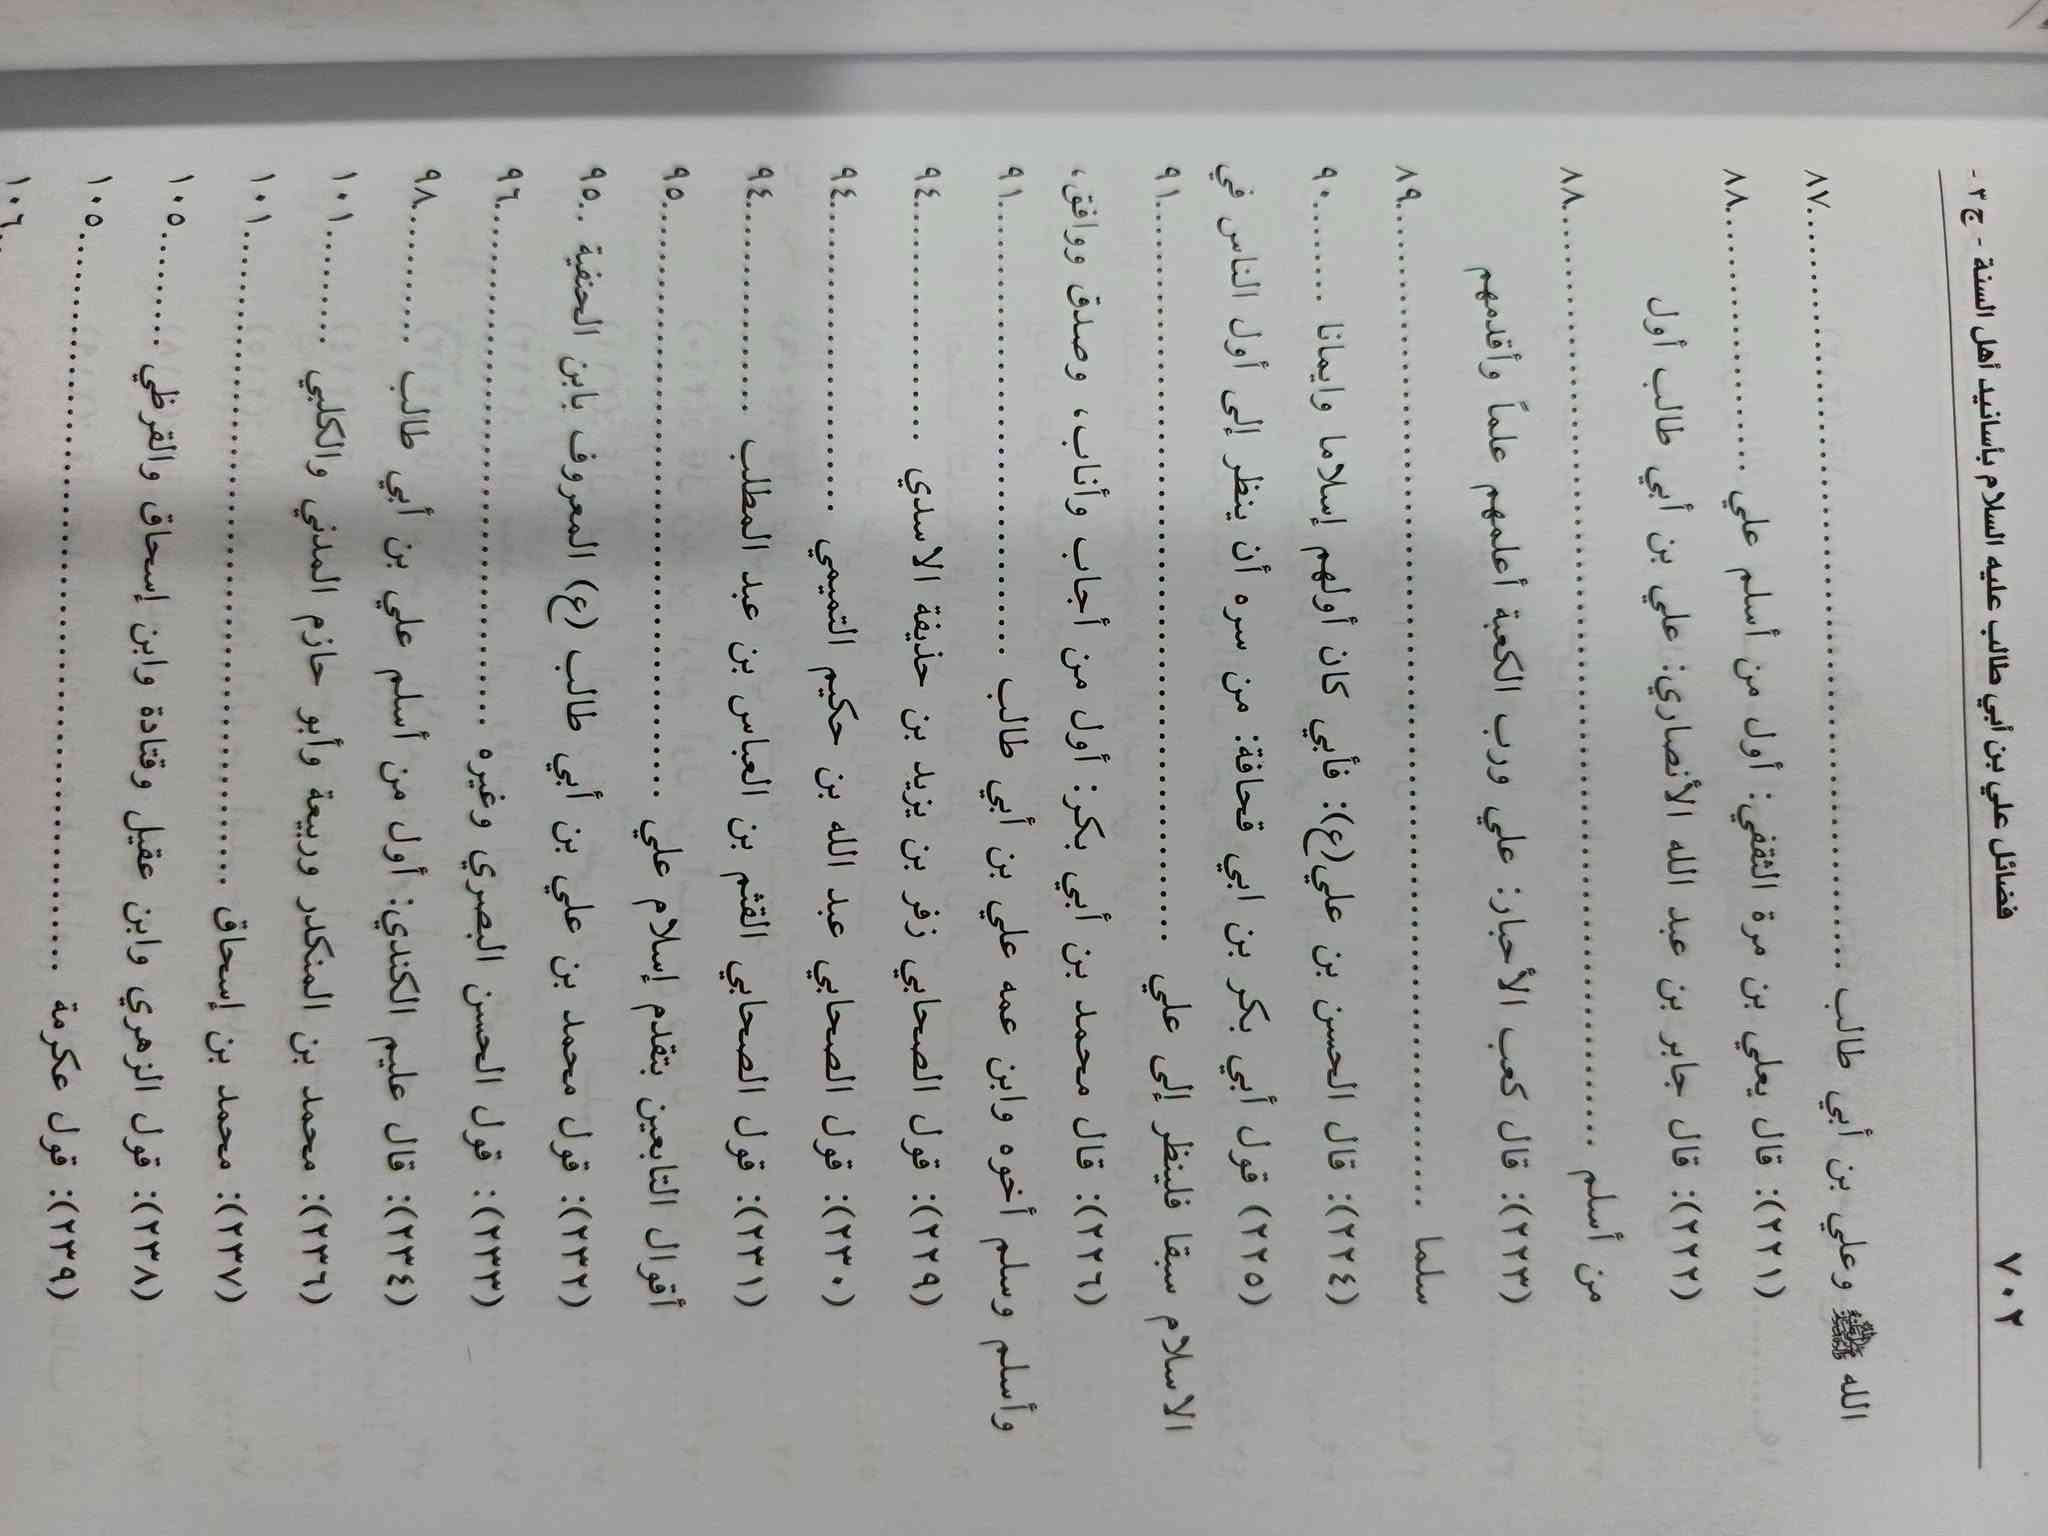 ٧٠٢ فضائل علي بن أبي طالب عليه السلام بأسانيد أهل السنة - ج ٣ -
الله ﷺ وعلي بن أبي طالب ........ ٨٧
(٢٢١): قال يعلي بن مرة الثقفي: أول من أسلم علي ........ ٨٨
(٢٢٢): قال جابر بن عبد الله الأنصاري: علي بن أبي طالب أول
من أسلم ........ ٨٨
(٢٢٣): قال كعب الأحبار: علي ورب الكعبة أعلمهم علماً وأقدمهم
سلما ........ ٨٩
(٢٢٤): قال الحسن بن علي(ع): فأبي كان أولهم إسلاما وايمانا ........ ٩٠
(٢٢٥) قول أبي بكر بن ابي قحافة: من سره أن ينظر إلى أول الناس في
الاسلام سبقا فلينظر إلى علي ........ ٩١
(٢٢٦): قال محمد بن أبي بكر: أول من أجاب وأناب، وصدق ووافق،
وأسلم وسلم أخوه وابن عمه علي بن أبي طالب ........ ٩١
(٢٢٩): قول الصحابي زفر بن يزيد بن حذيفة الاسدي ........ ٩٤
(٢٣٠): قول الصحابي عبد الله بن حكيم التميمي ........ ٩٤
(٢٣١): قول الصحابي القثم بن العباس بن عبد المطلب ........ ٩٤
أقوال التابعين بتقدم إسلام علي ........ ٩٥
(٢٣٢): قول محمد بن علي بن أبي طالب (ع) المعروف بابن الحنفية .. ٩٥
(٢٣٣): قول الحسن البصري وغيره ........ ٩٦
(٢٣٤): قال عليم الكندي: أول من أسلم علي بن أبي طالب ........ ٩٨
(٢٣٦): محمد بن المنكدر وربيعة وأبو حازم المدني والكلبي ........ ١٠١
(٢٣٧): محمد بن إسحاق ........ ١٠١
(٢٣٨): قول الزهري وابن عقيل وقتادة وابن إسحاق والقرظي ........ ١٠٥
(٢٣٩): قول عكرمة ........ ١٠٥
١٠٦